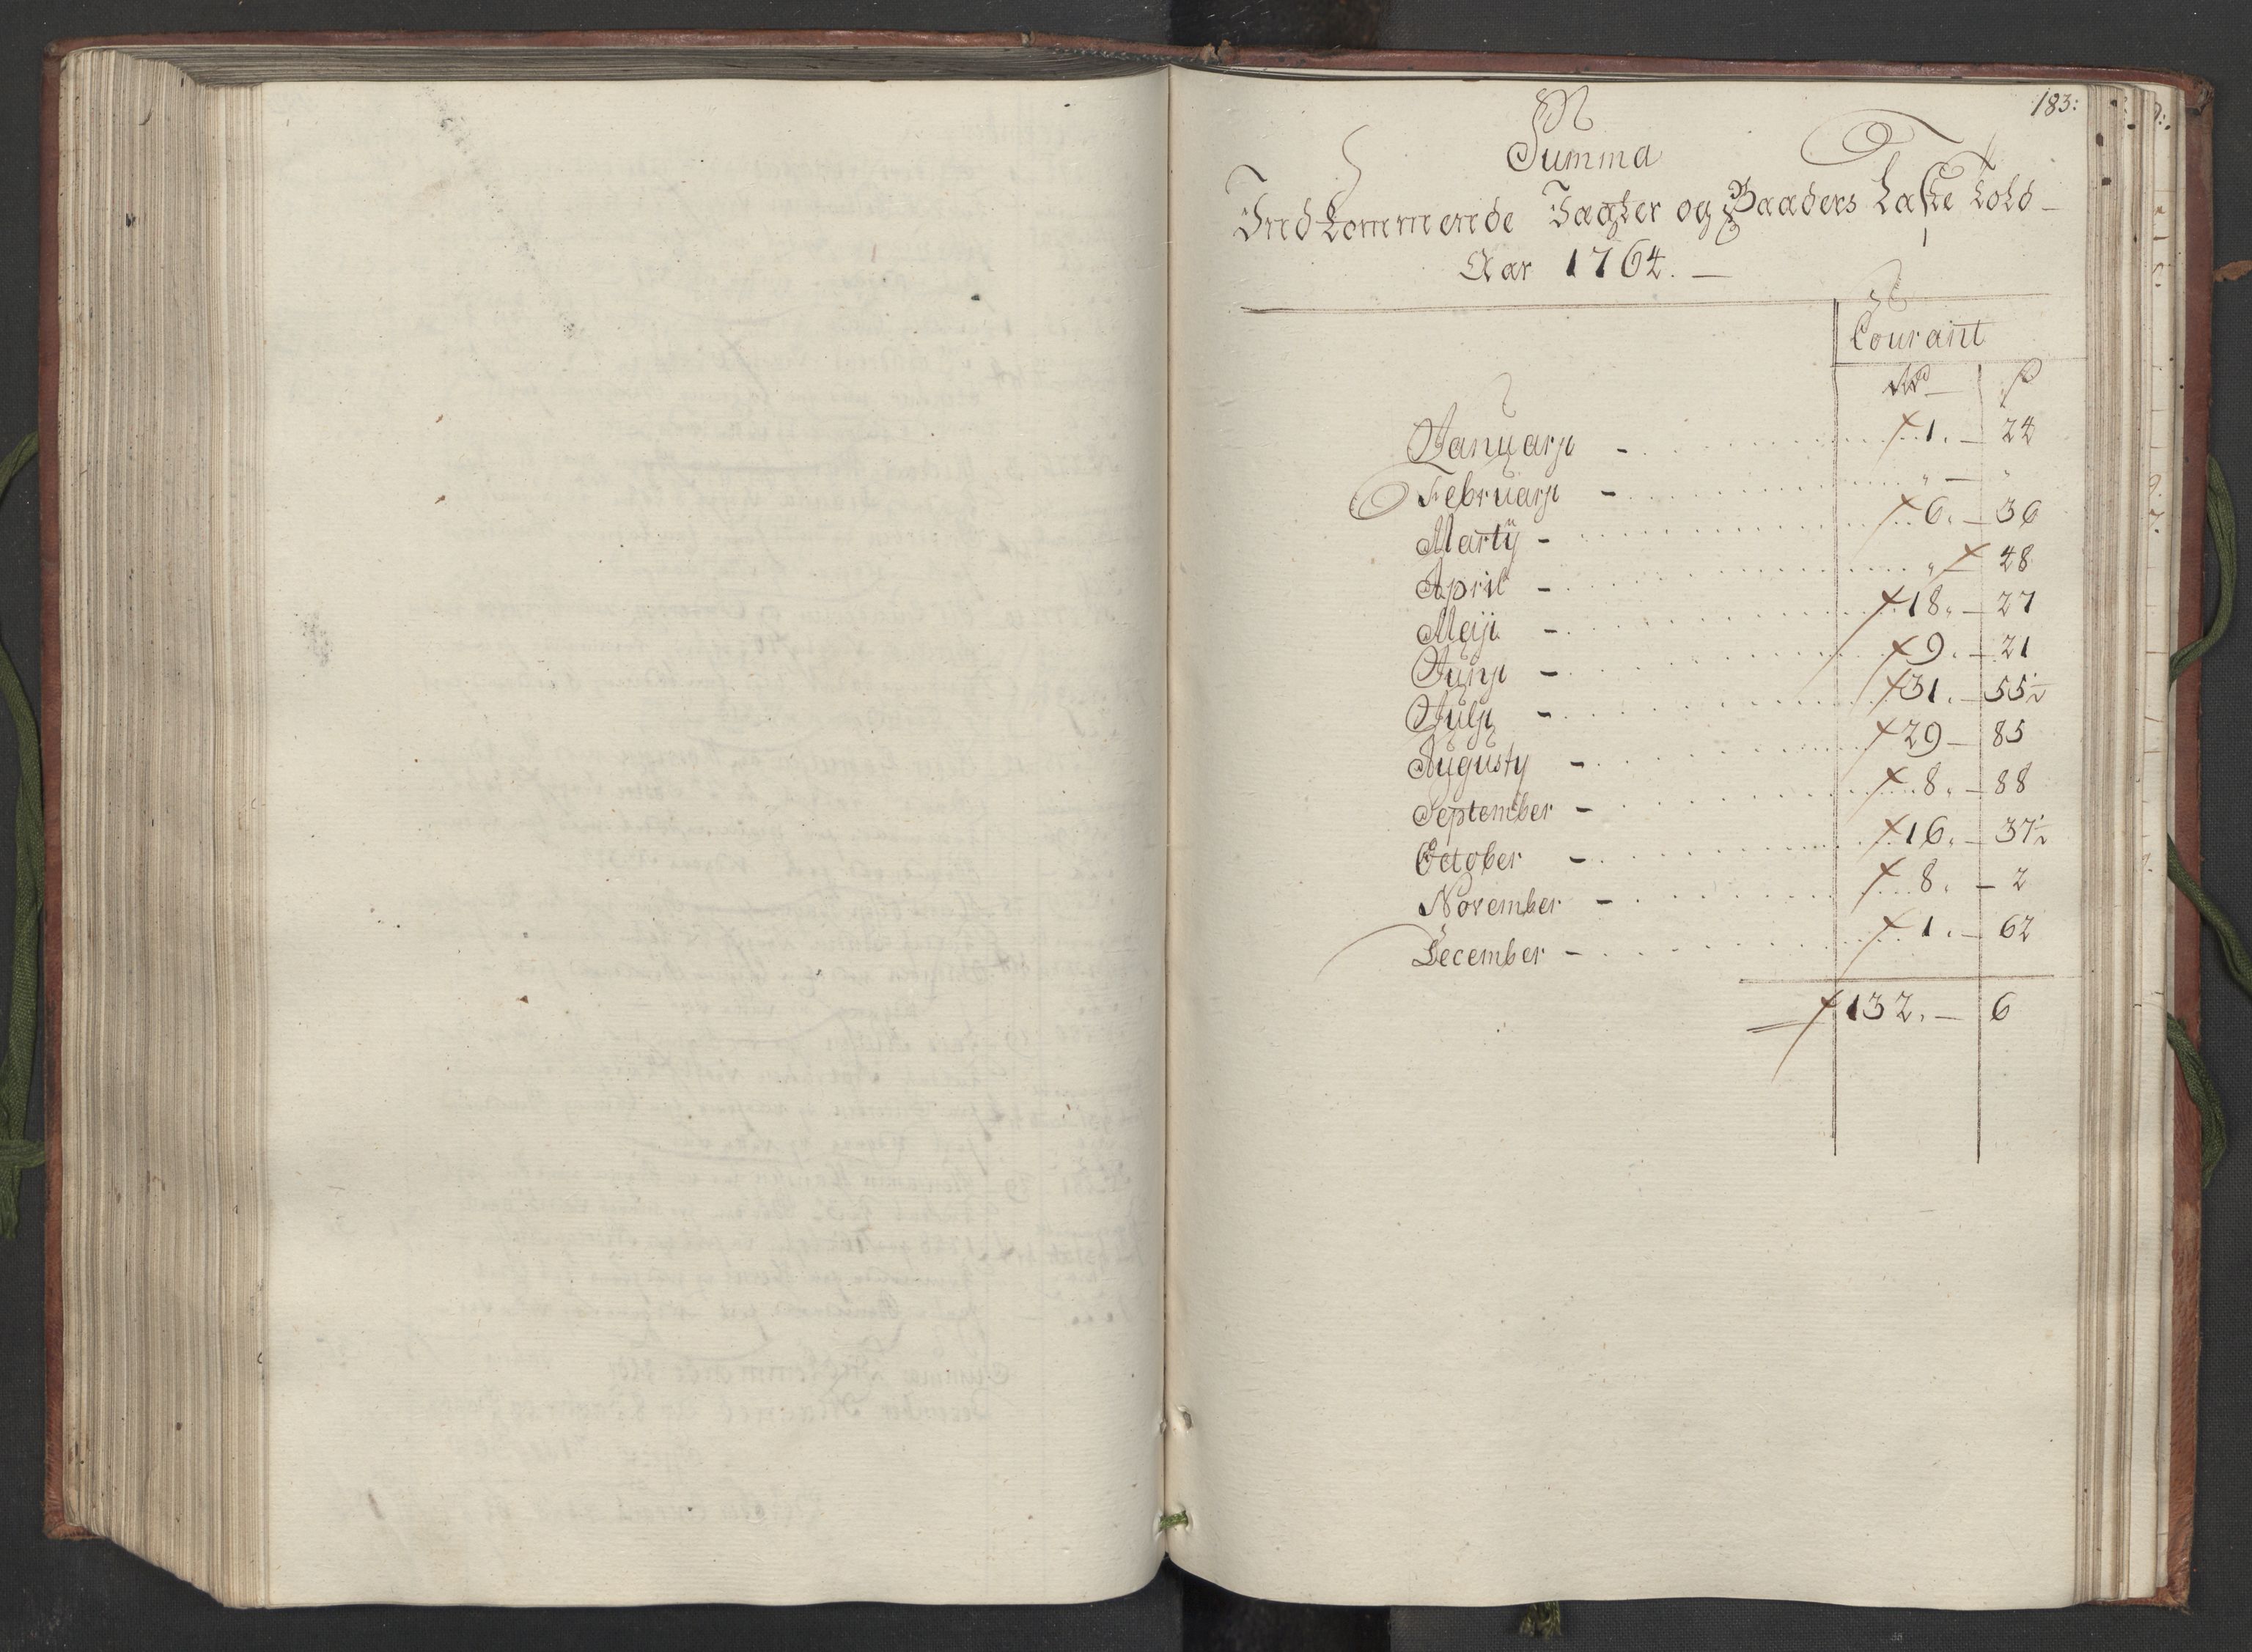 183:
Summa
Indkommende Jagter og Baaders Læste Told —
Aar 1764. —
Courant
Rd — ß
Januarji - 1. — 24
Februarji - " — "
Martij - 6. — 36
April - " — 48
Meiji - 18. — 27
Junji - 9. — 21
Julji - 31. — 55½
Augusty - 29 — 85
September - 8. — 88
October - 16. — 37½
November - 8. — 2
December - 1. — 62
132. — 6